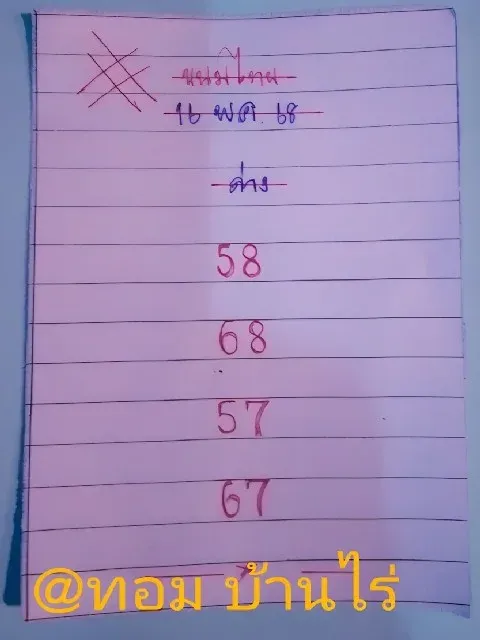 ขนมไทย
16 พ.ค. 68
ล่าง
58
68
57
67
@ทอม บ้านไร่